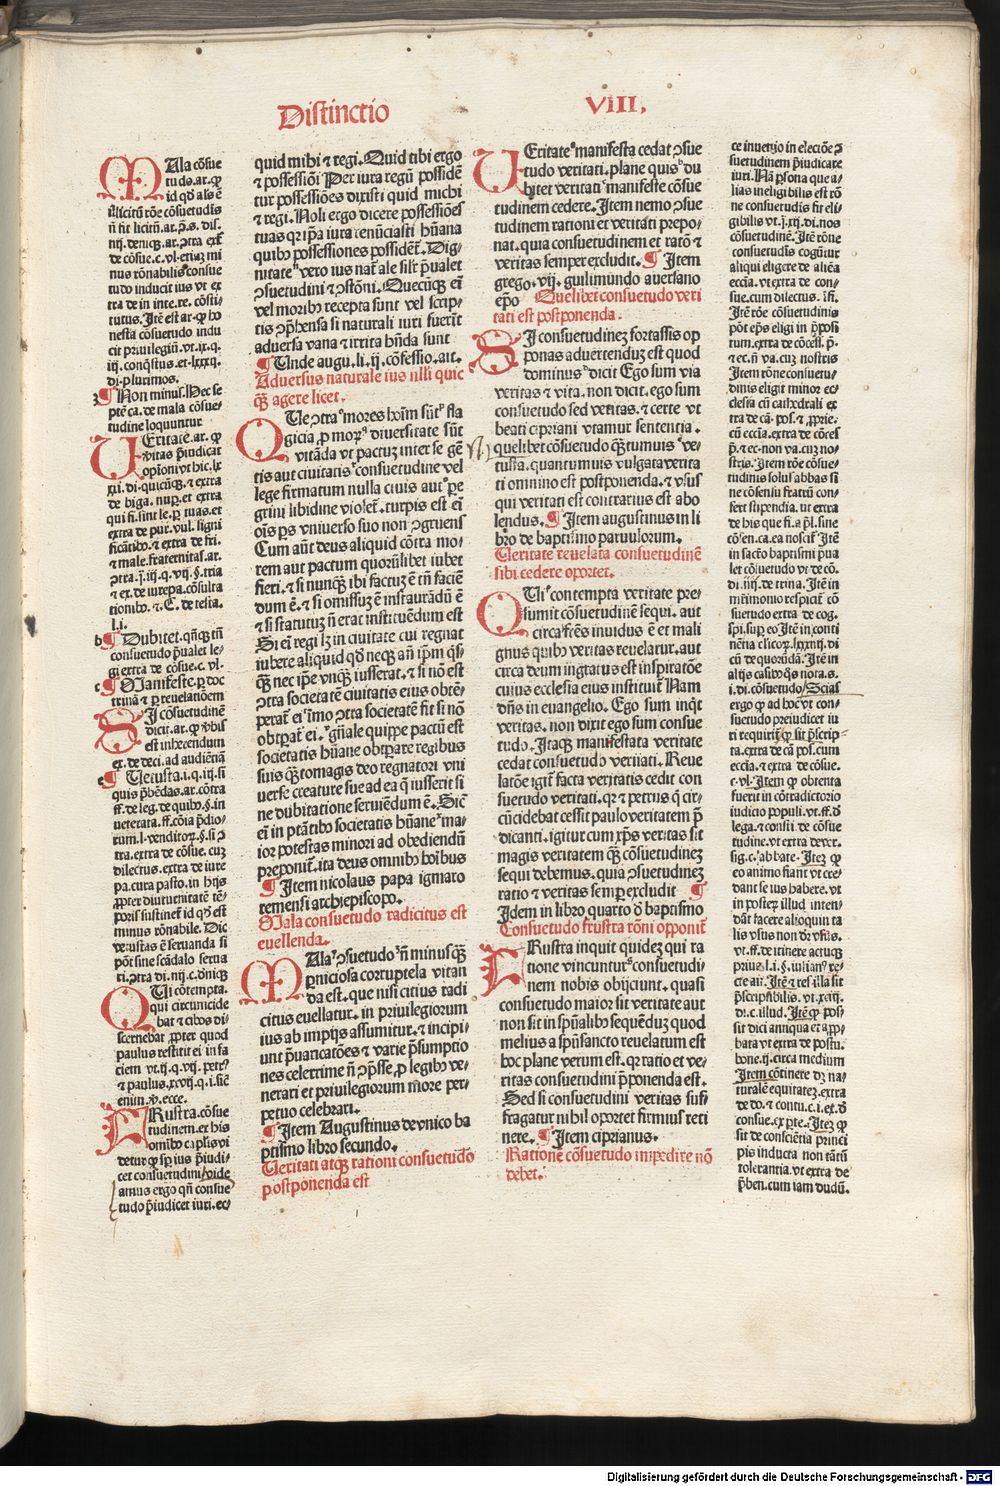 Distinctio VIII.
Mala cōsue
tudo. ar. ꝙ
id qd als ē
illicitū rōne cōsuetudis
de cōsue. c. vl. etiaꝫ mi
nus rōnabilis ꝯsue
tudo inducit ius vt ex
tra de in inte. re. cōsti-
nesta cōsuetudo indu
cit priuilegiū. vt. ix. q.
iij. conq̄stus. et. lxxxij.
di. plurimos.
¶ Non minus. Hec se
ptē ca. de mala cōsue-
tudine loquuntur
Ueritate. ar. ꝙ
vitas p̄iudicat
opioni vt hic. lx
xi. di. quicūqꝫ. ⁊ extra
de biga. nup. et extra
qui fi. sint le. per tuas. et
extra de pur. vul. signi
ficātibo. ⁊ extra de fri.
⁊ male. fraternitas. ar.
tionibo. ⁊. C. de testa.
l. i.
¶ Dubitet. qn̄qꝫ tn̄
consuetudo p̄ualet le-
gi extra de cōsue. c. vl.
¶ Manifeste. per doc
trinā ⁊ per reuelationem
Si cōsuetudinē
dicit. ar. ꝙ v̓bis
est inherendum
ex. de deci. ad audiētiā
¶ Uetusta. i. q. iij. si
quis p̄bēdas. ar. cōtra
ff. de leg. de quibo. §. in
ueterata. ff. cōia p̄dio-
rum. l. venditor. §. si ꝯ
tra. extra de cōsue. cuꝫ
dilectus. extra de iure
pa. cura pasto. in hijs
propter diuturnitatē tē-
poris sustinet id qd est
minus rōnabile. Dic
vetustas ē seruanda si
pōt sine scādalo serua
ri. ꝯtra di. iiij. c. deniqꝫ
Qui cōtempta.
qui circumcide
bat ⁊ cibos di-
scernebat propter quod
paulus restitit ei in fa
ciem vt. ij. q. vij. petrꝰ
⁊ paulus. xxvij. q. i. siē
enim. v. ecce.
Frustra. cōsue
tudinem. ex his
omnibo caplis vi
detur ꝙ semper ius p̄iudi-
cet consuetudini. vide
amus ergo qn̄ consue
tudo p̄iudicet iuri. ec-
quid mihi ⁊ regi. Quid tibi ergo
⁊ possessiōi Per iura regū possidē
tur possessiōes dixisti quid michi
⁊ regi. Noli ergo dicere possessiōes
tuas qr ip̄a iura renūciasti hūana
quibo possessiones possidēt. Dig-
nitate vero ius nat̄ale silr p̄ualet
ꝯsuetudini ⁊ ꝯstōni. Quecūqꝫ eī
vel moribo recepta sunt vel scrip-
tis cōp̄hensa si naturali iuri fuerīt
aduersa vana ⁊ irrita hn̄da sunt
¶ Unde augu. li. ij. cōfessio. ait.
Aduersus naturale ius nlli quic
q̄ꝫ agere licet.
Que ꝯtra mores hoīm sūt fla
gicia, pro mor diuersitate sūt
vitāda vt pactuꝫ inter se gē
tis aut ciuitatis consuetudine vel
lege firmatum nulla ciuis aut pere
grini libidine violet. turpis est eī
oīs ps vniuerso suo non ꝯgruens
Cum aūt deus aliquid cōtra mo-
rem aut pactum quorūlibet iubet
fieri. ⁊ si nunqꝫ ibi factuꝫ ē tn̄ faciē
dum ē. ⁊ si omissuꝫ ē instaurādū ē
⁊ si statutuꝫ n̄ erat instituēdum est
Si eī regi lꝫ in ciuitate cui regnat
iubere aliquid qd neqꝫ an̄ ip̄m q̄s-
q̄ꝫ nec ip̄e vnqꝫ iusserat. ⁊ si nō est
ꝯtra societatē ciuitatis eius obtē-
perat̄ ei imo ꝯtra societatē fit si nō
obtperat̄ ei. gn̄ale quippe pactū est
societatis hūane obtperare regibus
suis q̄ꝫtomagis deo regnatori vni
uerse creature sue ad ea q̄ iusserit si
ne dubitatione seruiēdum ē. Sic̄
eī in ptātibo societatis hūane ma-
ior potestas minori ad obediendū
preponit̄. ita deus omnibo hoībus
¶ Item nicolaus papa igmaro
remensi archiepiscopo.
Mala consuetudo radicitus est
euellenda.
Mala ꝯsuetudo n̄ minusq̄ꝫ
perniciosa corruptela vitan
da est. que nisi citius radi
citus euellatur. in priuilegiorum
ius ab impijs assumitur. ⁊ incipi
unt p̄uaricatōes ⁊ varie p̄sumptio
nes celerrime n̄ ꝯp̄sse, pro legibo ve-
nerari et priuilegiorum more per-
petuo celebrari.
¶ Item Augustinus de vnico ba
ptismo libro secundo.
Ueritati atqꝫ rationi consuetudo
postponenda est
Ueritate manifesta cedat ꝯsue
tudo veritati. plane quis du
bitet veritati manifeste cōsue
tudinem cedere. Item nemo ꝯsue
tudinem rationi et veritati prepo-
nat. quia consuetudinem et ratō ⁊
veritas semper excludit. ¶ Item
grego. vij. guilimundo auersano
ep̄o Quelibet consuetudo veri
tati est postponenda.
Si consuetudineꝫ fortassis op
ponas aduertenduꝫ est quod
dominus dicit Ego sum via
veritas ⁊ vita. non dicit. ego sum
consuetudo sed veritas. ⁊ certe vt
beati cipriani vtamur sententia.
quelibet cōsuetudo q̄ꝫtumuis ve-
tusta. quantumuis vulgata verita
ti omnino est postponenda. ⁊ vsus
qui veritati est contrarius est abo
lendus. ¶ Item augustinus in li
bro de baptismo paruulorum.
Ueritate reuelata consuetudinē
sibi cedere oportet.
Qui contempta veritate pre-
sumit cōsuetudinē sequi. aut
circa fr̄es inuidus ē et mali
gnus quibo veritas reuelatur. aut
circa deum ingratus est inspiratōe
cuius ecclesia eius instituit̄ Nam
dn̄s in euangelio. Ego sum inqt
veritas. non dixit ego sum consue
tudo. Itaqꝫ manifestata veritate
cedat consuetudo veritati. Reue
latōe igit̄ facta veritatis cedit con
suetudo veritati. qr ⁊ petrus q̄ cir-
cūcidebat cessit paulo veritatem p̄
dicanti. igitur cum xp̄s veritas sit
magis veritatem q̄ꝫ cōsuetudineꝫ
sequi debemus. quia ꝯsuetudineꝫ
ratio ⁊ veritas semper excludit ¶
Idem in libro quarto de baptismo
Consuetudo frustra rōni opponit̄
Frustra inquit quidez qui ra
tione vincuntur consuetudi-
nem nobis obijciunt. quasi
consuetudo maior sit veritate aut
non sit in sp̄ualibo sequēduꝫ quod
melius a sp̄usancto reuelatum est
hoc plane verum est. qr ratio et ve-
ritas consuetudini p̄ponenda est.
Sed si consuetudini veritas suf-
fragatur nihil oportet firmius reti
nere. ¶ Item ciprianus.
Rationē cōsuetudo impedire nō
debet.
ce inuenio in electiōe ꝯ
suetudinem p̄iudicare
iuri. Nā persona que a-
lias ineligibilis est rō
ne consuetudis fit eli-
gibilis vt. j. xij. di. nos
cōsuetudinē. Itē rōne
consuetudis cogūtur
aliqui eligere de aliēa
ecc̄ia. vt extra de con-
sue. cum dilectus. ifi.
Itē rōe cōsuetudinis
pōt ep̄s eligi in p̄posi
tum. extra de cōcess. p̄.
⁊ ec. n̄ va. cuꝫ nostris
Item rōne consuetu-
dinis eligit minor ec-
clesia cū cathedrali ex
tra de cā. pos. ⁊ prorie.
cū ecc̄ia. extra de cōces
p̄. ⁊ ec. non va. cuꝫ no-
stris. Item rōe cōsue-
tudinis solus abbas si
ne cōsensu fratrū con-
fert stipendia. vt extra
de his que fi. a p̄l. sine
cōsen. ca. ea noscit̄ Itē
in sacrō baptismi p̄ua
let cōsuetudo vt de cō.
di. iiij. de trina. Itē in
mr̄imonio respicit̄ cō
suetudo extra de cog.
spi. super eo Itē in conti
nētia clicor. lxxxiij. di
cū de quorūdā. Itē in
alijs casibo q̄s nota. s.
i. di. cōsuetudo. Scias
ergo ꝙ ad hoc vt con-
suetudo preiudicet iu
ri requirit̄ ꝙ sit p̄scrip-
ta. extra de cā pos. cum
ecc̄ia. ⁊ extra de cōsue.
c. vl. Item ꝙ obtenta
fuerit in cōtradictorio
iudicio populi. vt. ff. de
lega. ⁊ consti de cōsue
tudine. vt extra de ver.
sig. c. abbate. Iteꝫ ꝙ
eo animo fiant vt cre-
dant se ius habere. vt
in posteꝝ illud inten-
dāt facere alioquin ta
lis vsus non dr̄ vsus.
vt. ff. de itinere actuqꝫ
priue. l. i. §. iulianꝰ re-
cte ait. Itē ⁊ res illa sit
p̄scriptibilis. vt. xciij.
di. c. illud. Itē ꝙ pos-
sit dici antiqua et appro-
bata vt extra de postu.
bone. ij. circa medium
Item cōtinere dꝫ na-
turalē equitateꝫ. extra
de do. ⁊ contu. c. i. et. de
consue. ex pte. Iteꝫ ꝙ
sit de consciētia princi
pis inducta non tātū
tolerantia. vt extra de
p̄ben. cum iam dudū.
Digitalisierung gefördert durch die Deutsche Forschungsgemeinschaft - DFG